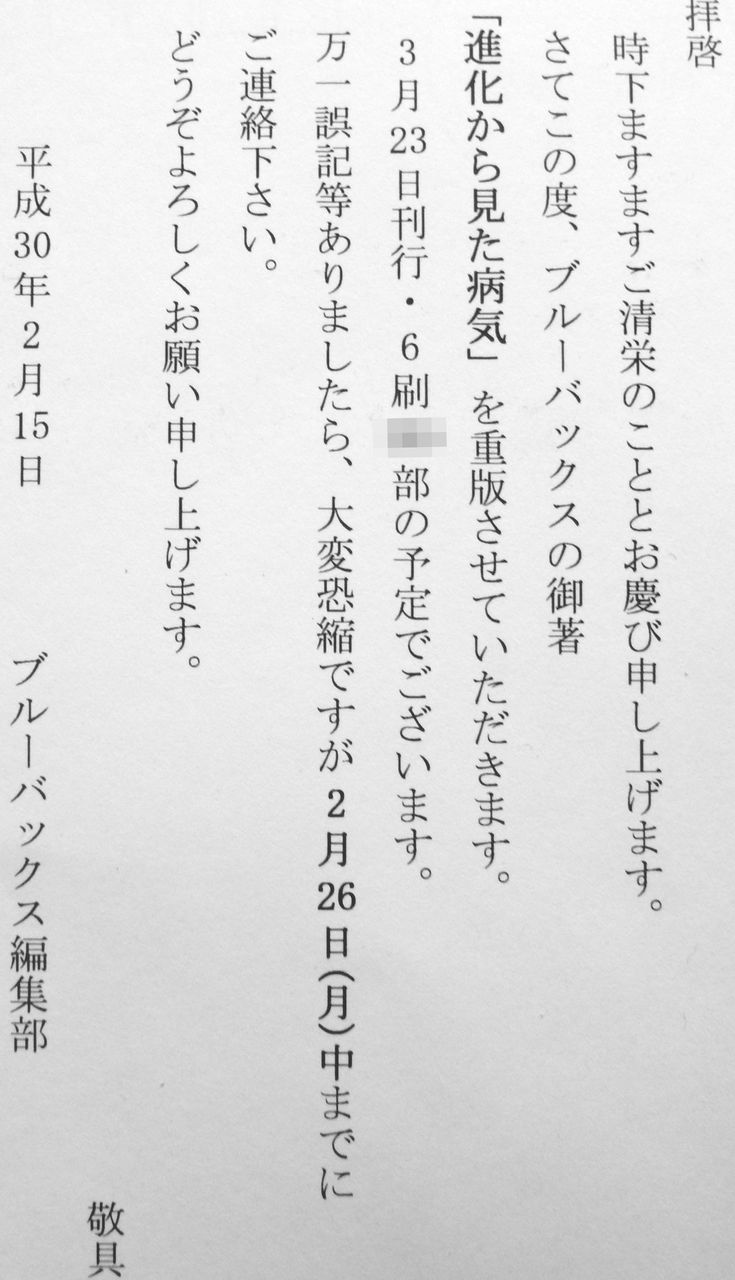 拝啓
時下ますますご清栄のこととお慶び申し上げます。
さてこの度、ブルーバックスの御著
「進化から見た病気」を重版させていただきます。
3月23日刊行・6刷部の予定でございます。
万一誤記等ありましたら、大変恐縮ですが2月26日(月)中までに
ご連絡下さい。
どうぞよろしくお願い申し上げます。
敬具
平成30年2月15日 ブルーバックス編集部